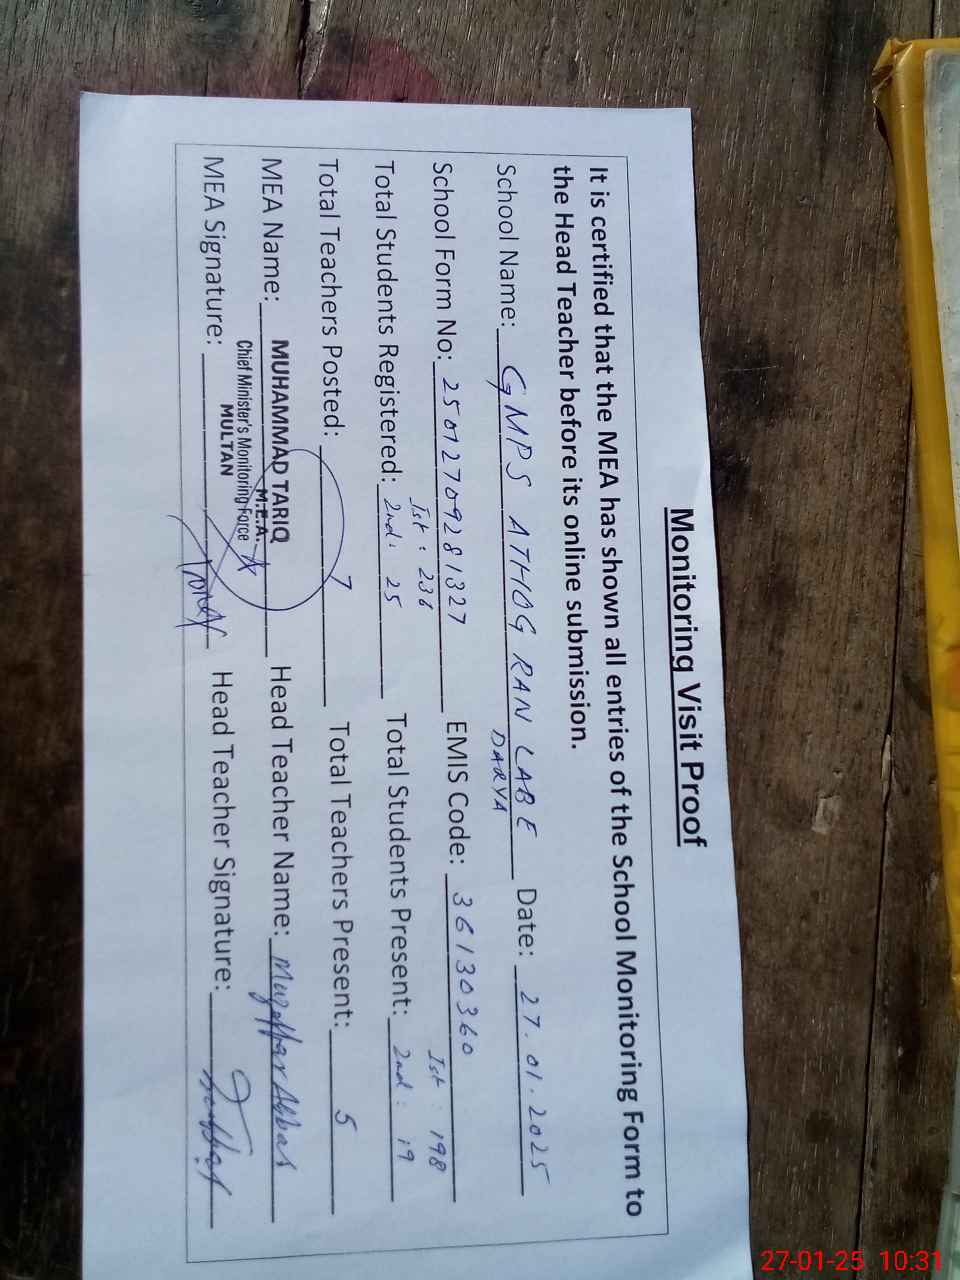 Monitoring Visit Proof
It is certified that the MEA has shown all entries of the School Monitoring Form to
the Head Teacher before its online submission.
School Name: GMPS ATHOG RAN LAB E Date: 27.01.2025
DARYA
School Form No: 2501270928 1327 EMIS Code: 36130360
Ist: 236 Ist: 198
Total Students Registered: 2nd: 25 Total Students Present: 2nd: 19
Total Teachers Posted: 7 Total Teachers Present: 5
MEA Name: MUHAMMAD TARIQ Head Teacher Name: Muzaffar Abbas
M.E.A.
Chief Minister's Monitoring Force
MULTAN
MEA Signature: Head Teacher Signature:
27-01-25 10:31